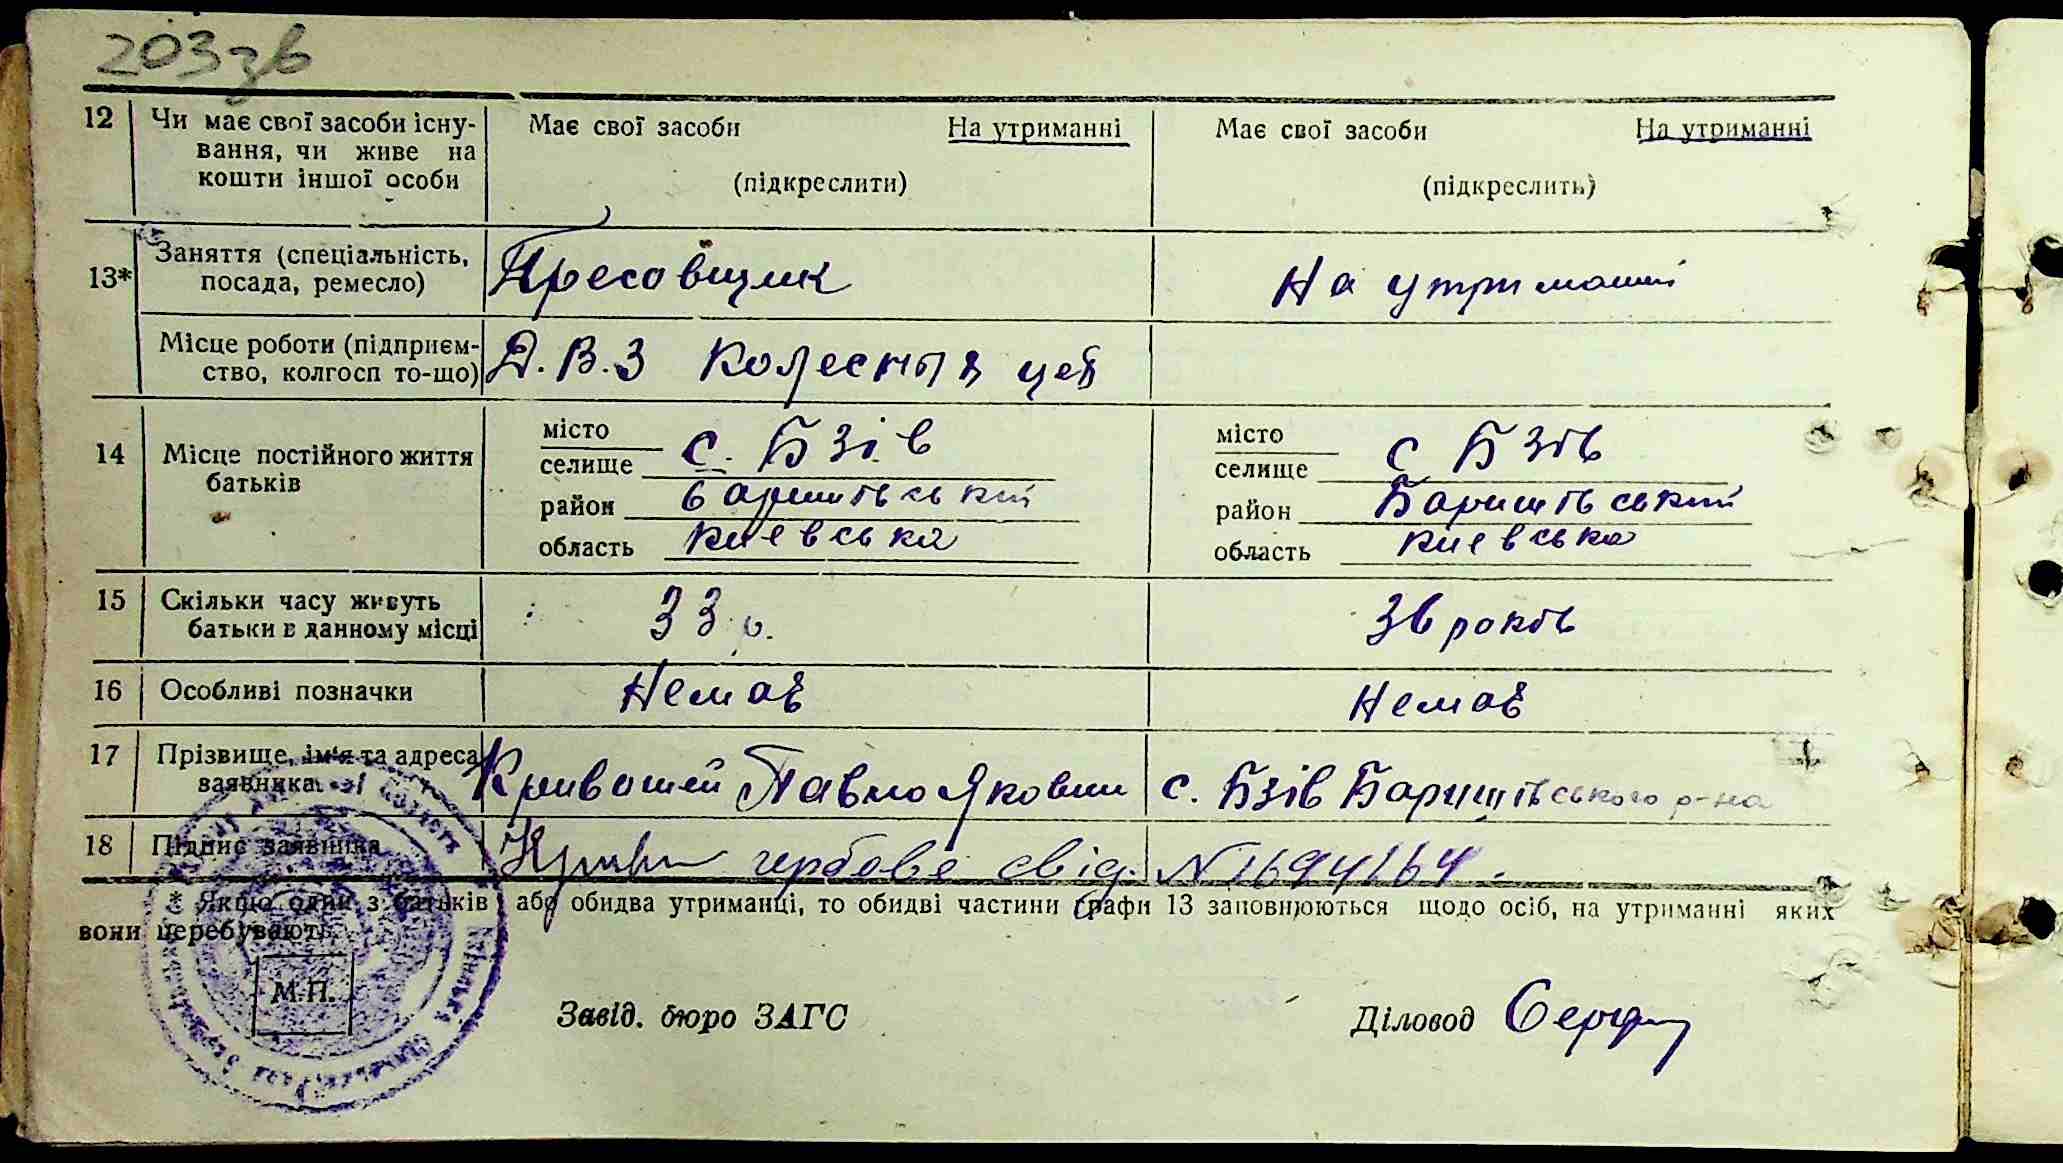 203зв
12 Чи має свої засоби існу- Має свої засоби На утриманні Має свої засоби На утриманні
вання, чи живе на
кошти іншої особи (підкреслити) (підкреслить)
13* Заняття (спеціальність, Пресовщик На утриманні
посада, ремесло)
Місце роботи (підприєм- Д.В.З Колесный цех
ство, колгосп то-що)
14 Місце постійного життя батьків
місто с. Бзів місто с Бзів
селище селище
район Баришівський район Баришівський
область Киевська область Киевська
15 Скільки часу живуть 33 р. 36 років
батьки в данному місці
16 Особливі позначки Немає Немає
17 Прізвище, ім'я та адреса Кривошей Павло Якович с. Бзів Баришівського р-на
заявника
18 Підпис заявника гербове свід. N 1694164.
* Якщо один з батьків або обидва утриманці, то обидві частини графи 13 заповнюються щодо осіб, на утриманні яких
вони перебувають.
М.П.
Завід. бюро ЗАГС Діловод